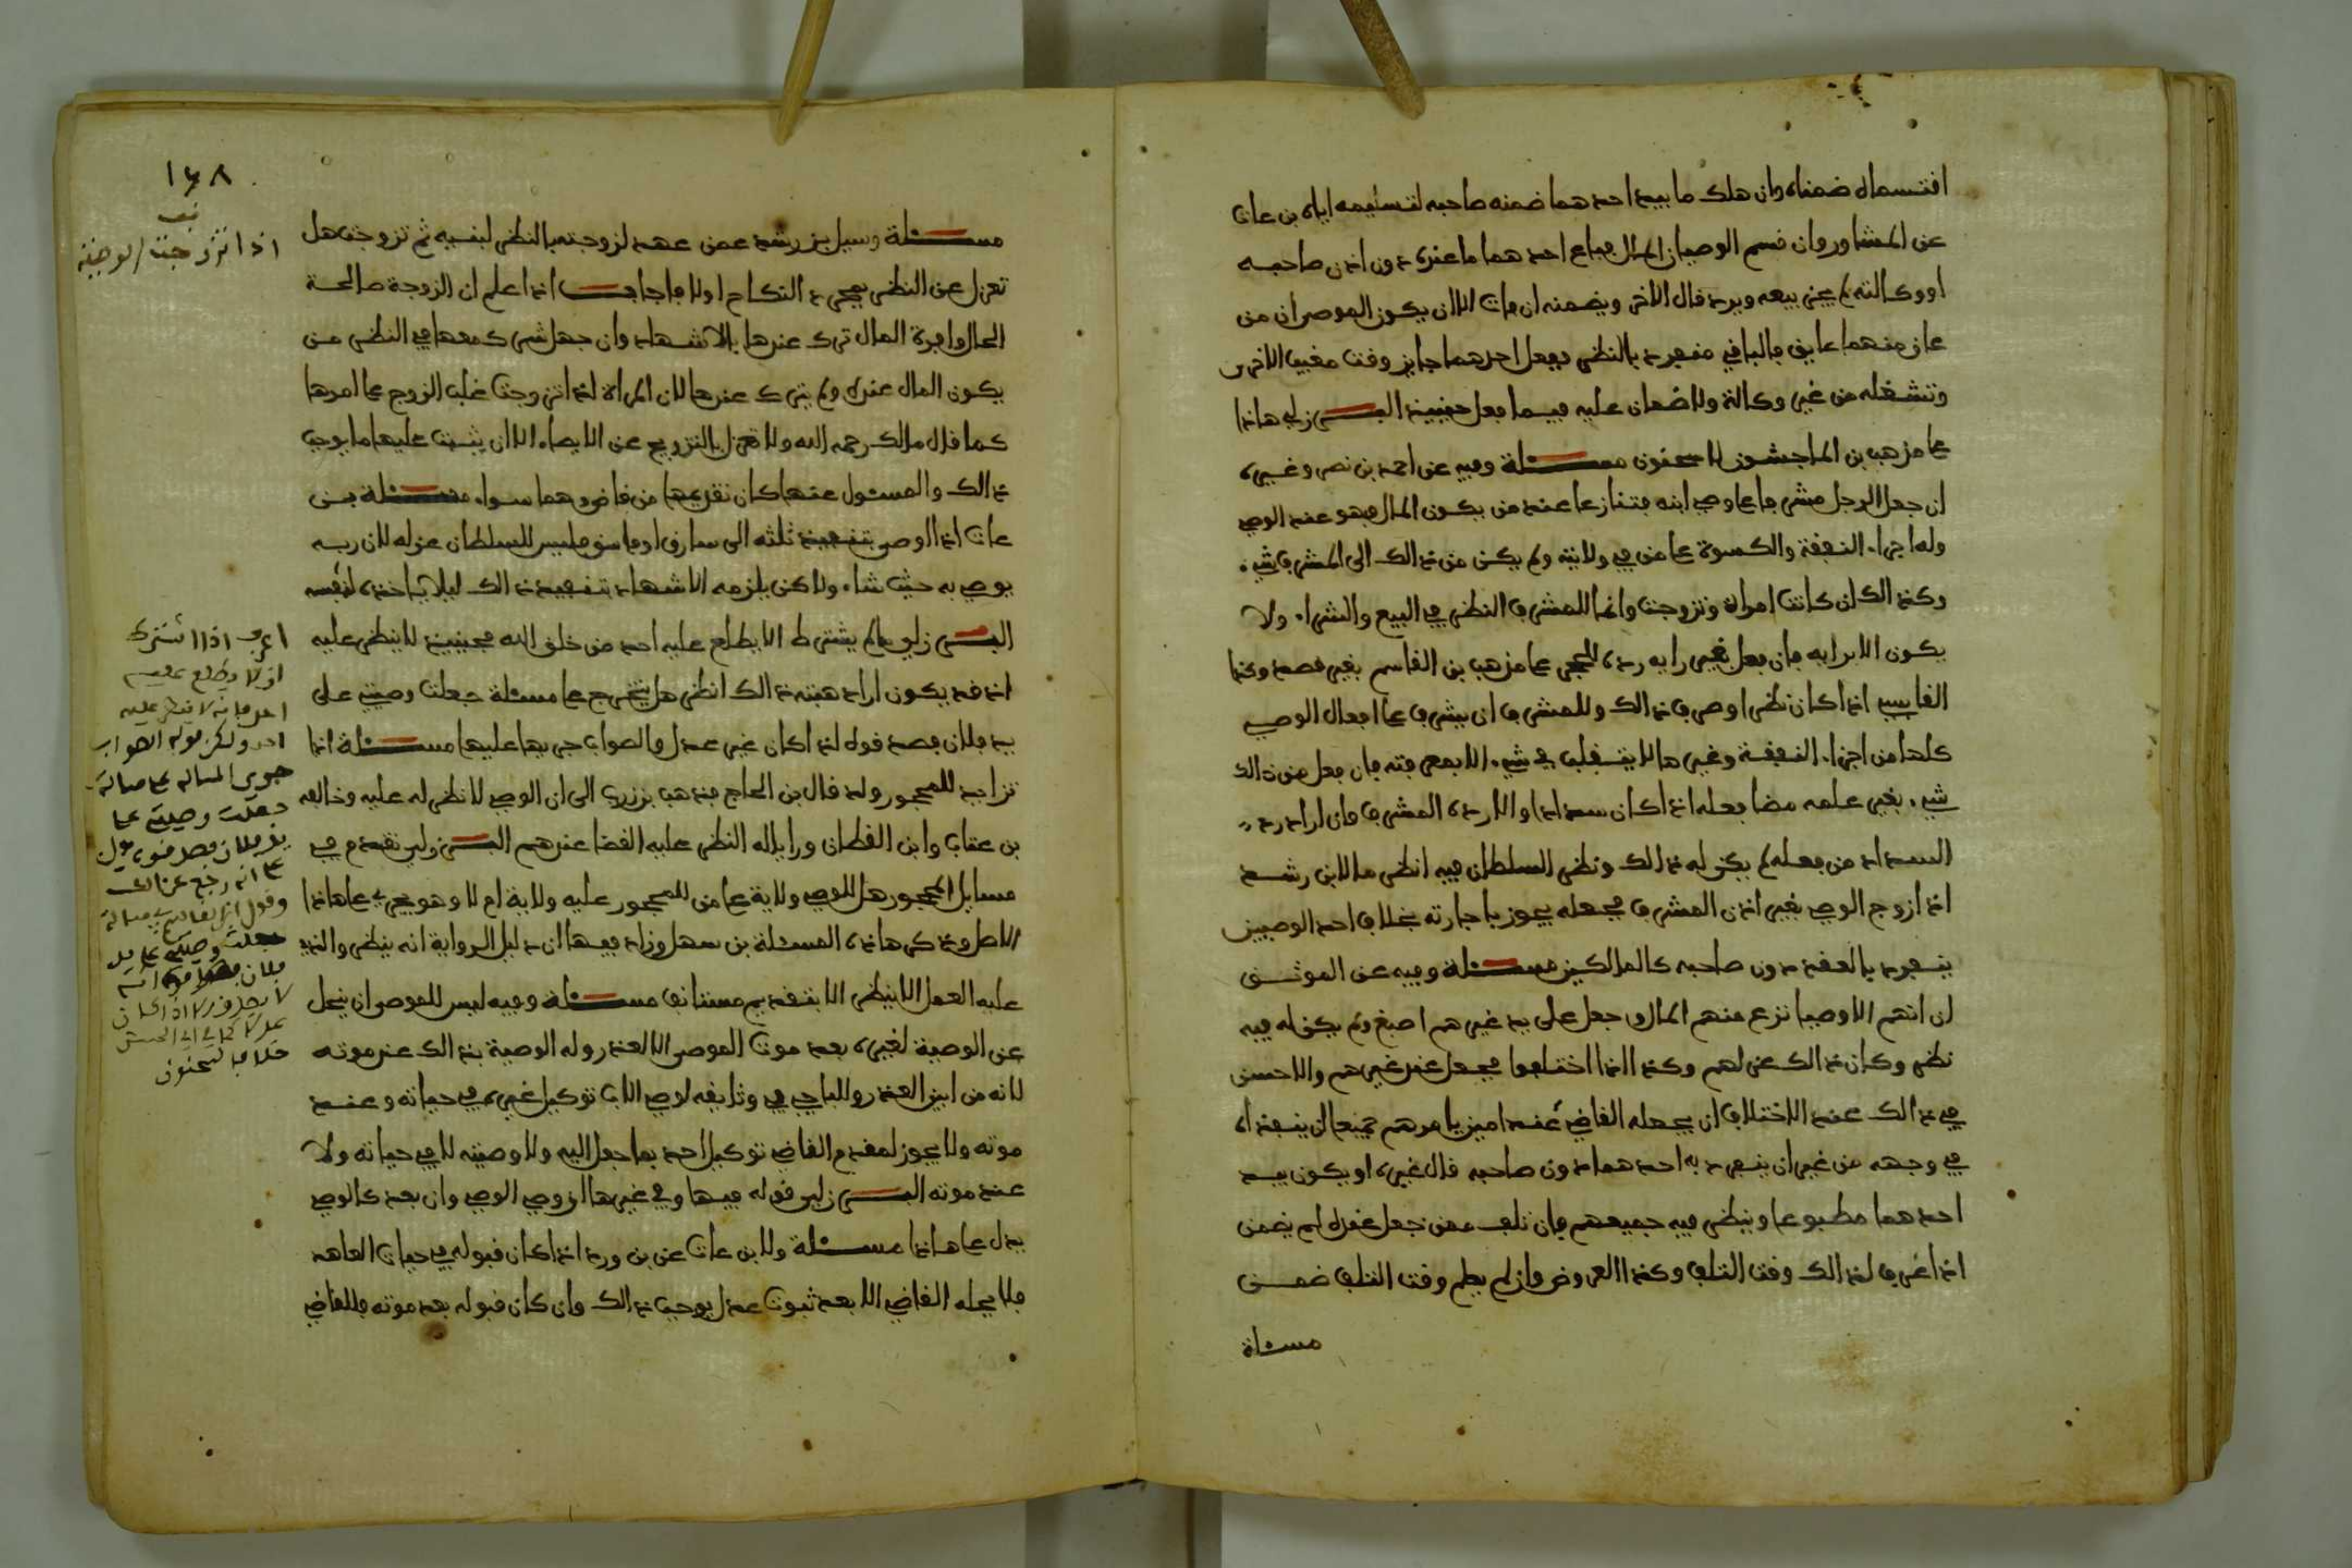 اقتسماه ضمناه وان هلك ما بيد احدهما ضمنه صاحبه لتسليمه اياه بن عات
عن المشاور وان قسم الوصيان المال فباع احدهما ما عنده دون اذن صاحبه
او وكالته لم يجز بيعه ويرد قال الاخر ويضمنه ان فات الا ان يكون الموصى ان من
عاق منهما عايق فالباقي منفرد بالنظر ففعل احدهما جايز وقت مغيب الاخر
وتشغله من غير وكالة ولا ضمان عليه فيما فعل حينيذ البرزلي هاذا
على مذهب بن الماجشون لا سحنون مسئلة وفيه عن احمد بن نصر وغيره
ان جعل الرجل مشرفا على وصي ابنه فتنازعا عند من يكون المال فهو عند الوصي
وله اجراء النفقة والكسوة على من في ولايته ولم يكن من ذالك الى المشرف شيء
وكذالك ان كانت امراة وتزوجت وانما للمشرف النظر في البيع والشراء ولا
يكون الا برايه فان فعل بغير رايه رده للحجر على مذهب بن القاسم بغير قصد وكذا
القاسم اذا كان نظرا وصرف ذالك وللمشرف ان يشرف على افعال الوصي
كلها من اجراء النفقة وغيرها لا يتغلب في شيء الا بمعرفته فان فعل من ذالك
شيء بغير علمه مضا فعله اذا كان سدادا والا رده المشرف فان اراد رد
السداد من فعله لم يكن له ذالك ونظر السلطان فيه انظر ما لابن رشد
اذا زوج الوصي بغير اذن المشرف فجعله يجوز باجازته بخلاف احد الوصيين
ينفرد بالعقد دون صاحبه كالمالكين مسئلة وفيه عن الموثق
ان اتهم الاوصيا نزع منهم المال وجعل على يد غيرهم اصبغ ولم يكن له فيه
نظر وكان ذالك عزلهم وكذا اذا اختلفوا فجعل عند غيرهم والاحسن
في ذالك عند الاختلاف ان يجعله القاضي عند امين يامرهم جميعا ان ينفذاه
في وجهه من غير ان ينفرد به احدهما دون صاحبه قال غيره او يكون بيد
احدهما مطبوعا وينظر فيه جميعهم فان تلف ممن جعل عنده لم يضمن
اذا عرف لذالك وقت التلف وكذا العروض وان لم يعلم وقت التلف ضمن
مسئلة
١٤٨
قف
اذا تزوجت الوصية
مسئلة وسيل بن رشد عمن عهد لزوجته بالنظر لبنيه ثم تزوجت هل
تعزل عن النظر بمجرد النكاح اولا فاجاب اذا علم ان الزوجة صالحة
الحال وافرة المال ترك عندها بالاشهاد وان جهل شرك معها في النظر من
يكون المال عنده ولم يترك عندها لان المراة اذا تزوجت غلب الزوج على امرها
كما قال مالك رحمه الله ولا تعزل بالتزويج عن الايصاء الا ان يثبت عليها ما يوجب
ذالك والمسئول عنها كان تقديمها من قاض وهما سواء مسئلة بن
عات اذا اوصى بتنفيذ ثلثه الى سارق او فاسق فليس للسلطان عزله لان ربه
يوصي به حيث شاء ولاكن يلزمه الاشهاد بتنفيذ ذالك ليلا ياخذه لنفسه
البرزلي ما لم يشترط الا يطلع عليه احد من خلق الله فحينيذ لا ينظر عليه
اذ قد يكون اراد هبته ذالك انظر هل يتخرج على مسئلة جعلت وصيتي على
يد فلان فصدقوه اذا كان غير عدل والصواب جريها عليها مسئلة اذا
تزايد للمحجور ولد قال بن الحاج فذهب بن زرب الى ان الوصي لا نظر له عليه وخالفه
بن عتاب وابن القطان ورايا له النظر عليه القضا عندهم البرزلي وتقدم في
مسايل المحجور هل للوصي ولاية على من للمحجور عليه ولاية ام لا وهو يجري على هاذا
الاصل وذكر هاذه المسئلة بن سهل وزاد فيها ان دليل الرواية انه ينظر والذي
عليه العمل الا ينظر الا بتقديم مستانف مسئلة وفيه ليس للموصى ان ينحل
عن الوصية لغيره بعد موت الموصى الا لعذر وله الوصية بذالك عند موته
لانه من ابين العذر وللباجي في وثايقه لوصي الاب توكيل غيره في حياته وعند
موته ولا يجوز لمقدم القاضي توكيل احد بما جعل اليه ولا وصيته لا في حياته ولا
عند موته البرزلي قوله فيها وفي غيرها ان وصي الوصي وان بعد كالوصي
يدل على هاذا مسئلة ولابن عات عن بن ورد اذا كان قبوله في حيات العاهد
فلا يحله القاضي الا بعد ثبوت عذر يوجب ذالك وان كان قبوله بعد موته فللقاضي
اعرف اذا اشترك
ان لا يطلع عليه
احد فانه لا ينظر عليه
احد ولكن قوله الصواب
جري المسالة على مسالة
جعلت وصيتي على
يد فلان فصدقوه
على انه رجع عن ذالك
جعلت وصيتي على يد
خلافا لسحنون